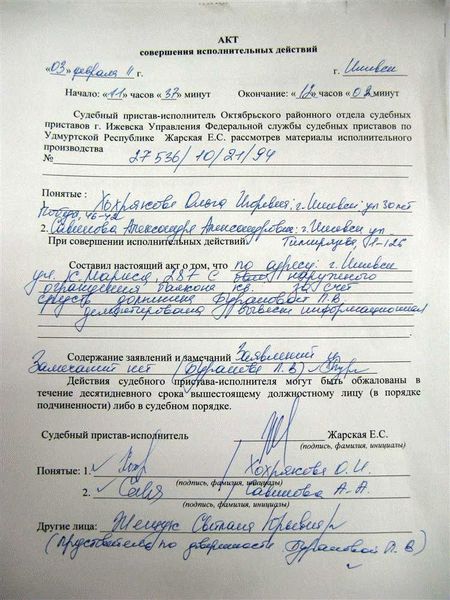 АКТ
совершения исполнительных действий
«03» февраля 11 г. г. Ижевск
Начало: «11» часов «37» минут Окончание: «12» часов «02» минут
Судебный пристав-исполнитель Октябрьского районного отдела судебных
приставов г. Ижевска Управления Федеральной службы судебных приставов по
Удмуртской Республике Жарская Е.С. рассмотрев материалы исполнительного
производства
№ 27536/10/21/94
Понятые : 1. Хохрякова Ольга Игоревна; г. Ижевск ул 30 лет
Победы, 46-42
2. Савинова Александра Александровна; г. Ижевск ул
При совершении исполнительных действий Тимирязева
Составил настоящий акт о том, что по адресу: г. Ижевск
ул. К. Маркса, 287 с наружного
ограждения балкона кв. за счет
средств должника Бурановой Л. В
демонтирована вывеска информационная
Содержание заявлений и замечаний Заявлений и
Замечаний нет (Буранова Л. В)
Действия судебного пристава-исполнителя могут быть обжалованы в
течение десятидневного срока вышестоящему должностному лицу (в порядке
подчиненности) либо в судебном порядке.
Судебный пристав-исполнитель Жарская Е.С.
(подпись, фамилия, инициалы)
Понятые: 1. Хохрякова О. И.
(подпись, фамилия, инициалы)
2. Савинова А. А.
(подпись, фамилия, инициалы)
Другие лица: Светлана Юрьевна
(представитель по доверенности Бурановой Л. В)